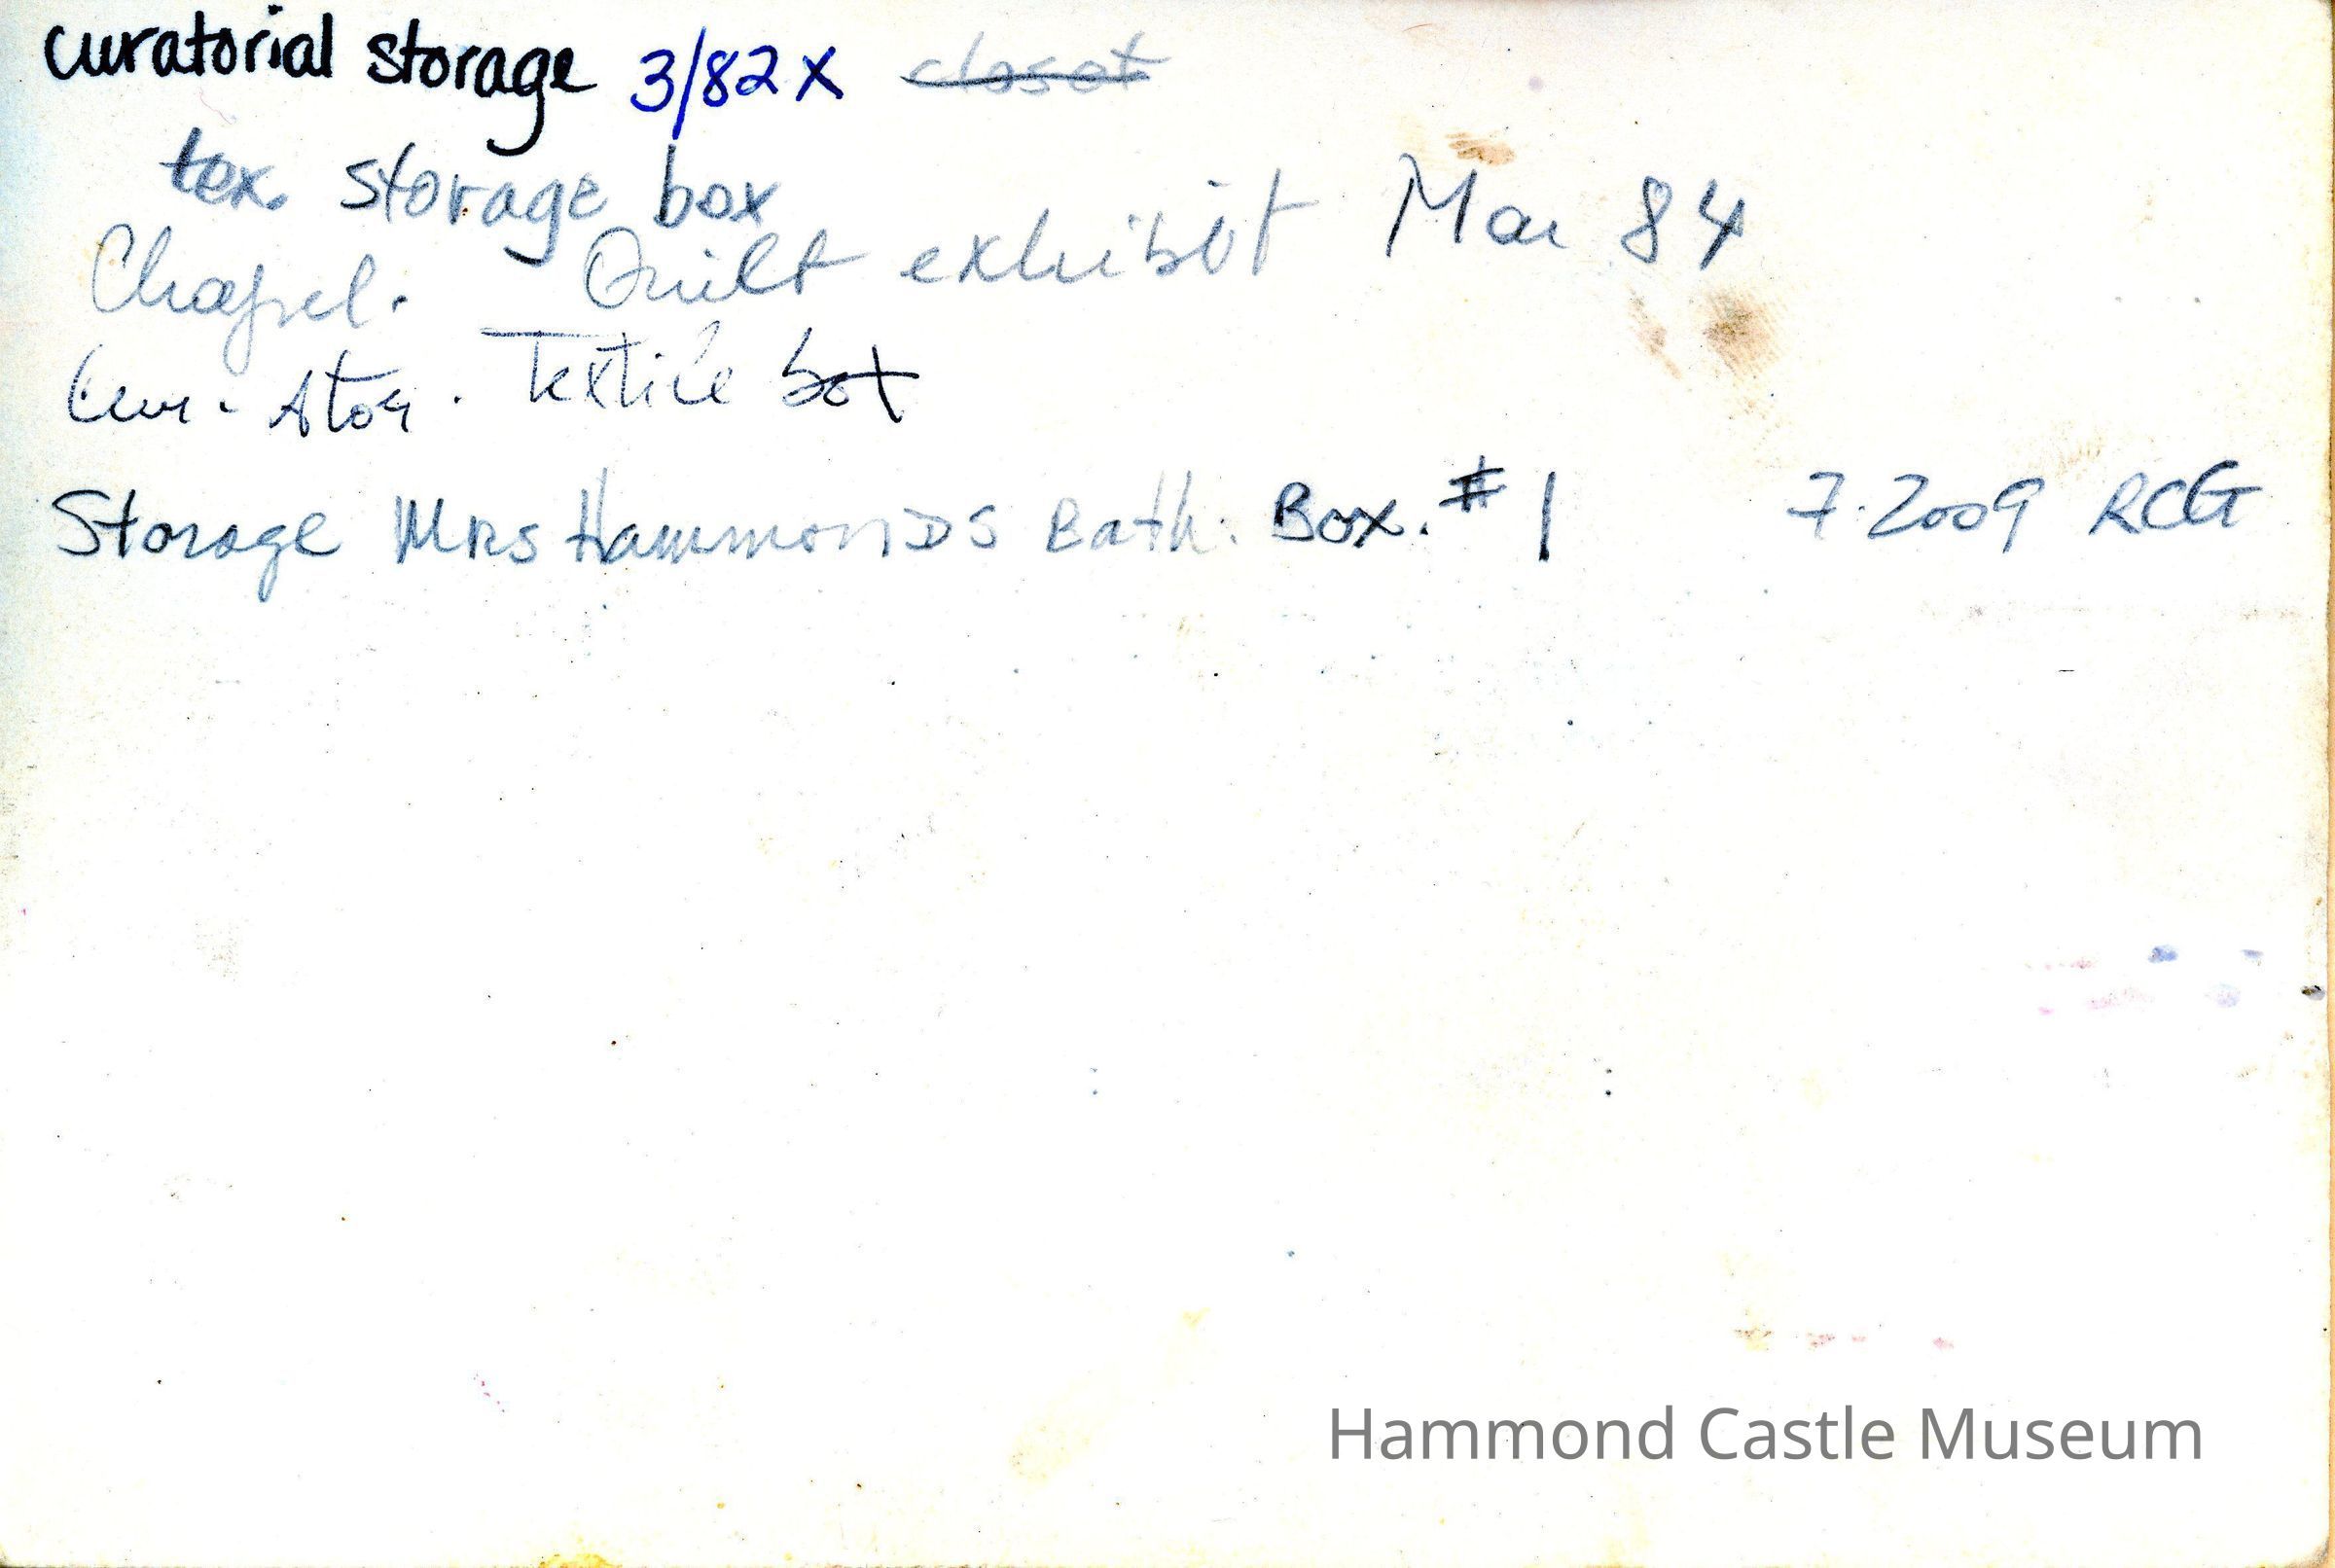 curatorial storage 3/82 X closet
tex. storage box
Chapel. Quilt exhibit Mar 84
Cur. Stor. Textile box
Storage Mrs HammonDs Bath. Box. # 1 7.2009 RCG
Hammond Castle Museum